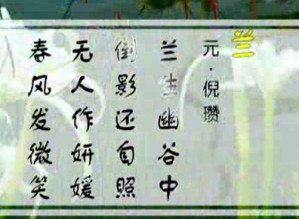 兰
元·倪瓒
兰生幽谷中
倒影还自照
无人作妍媛
春风发微笑